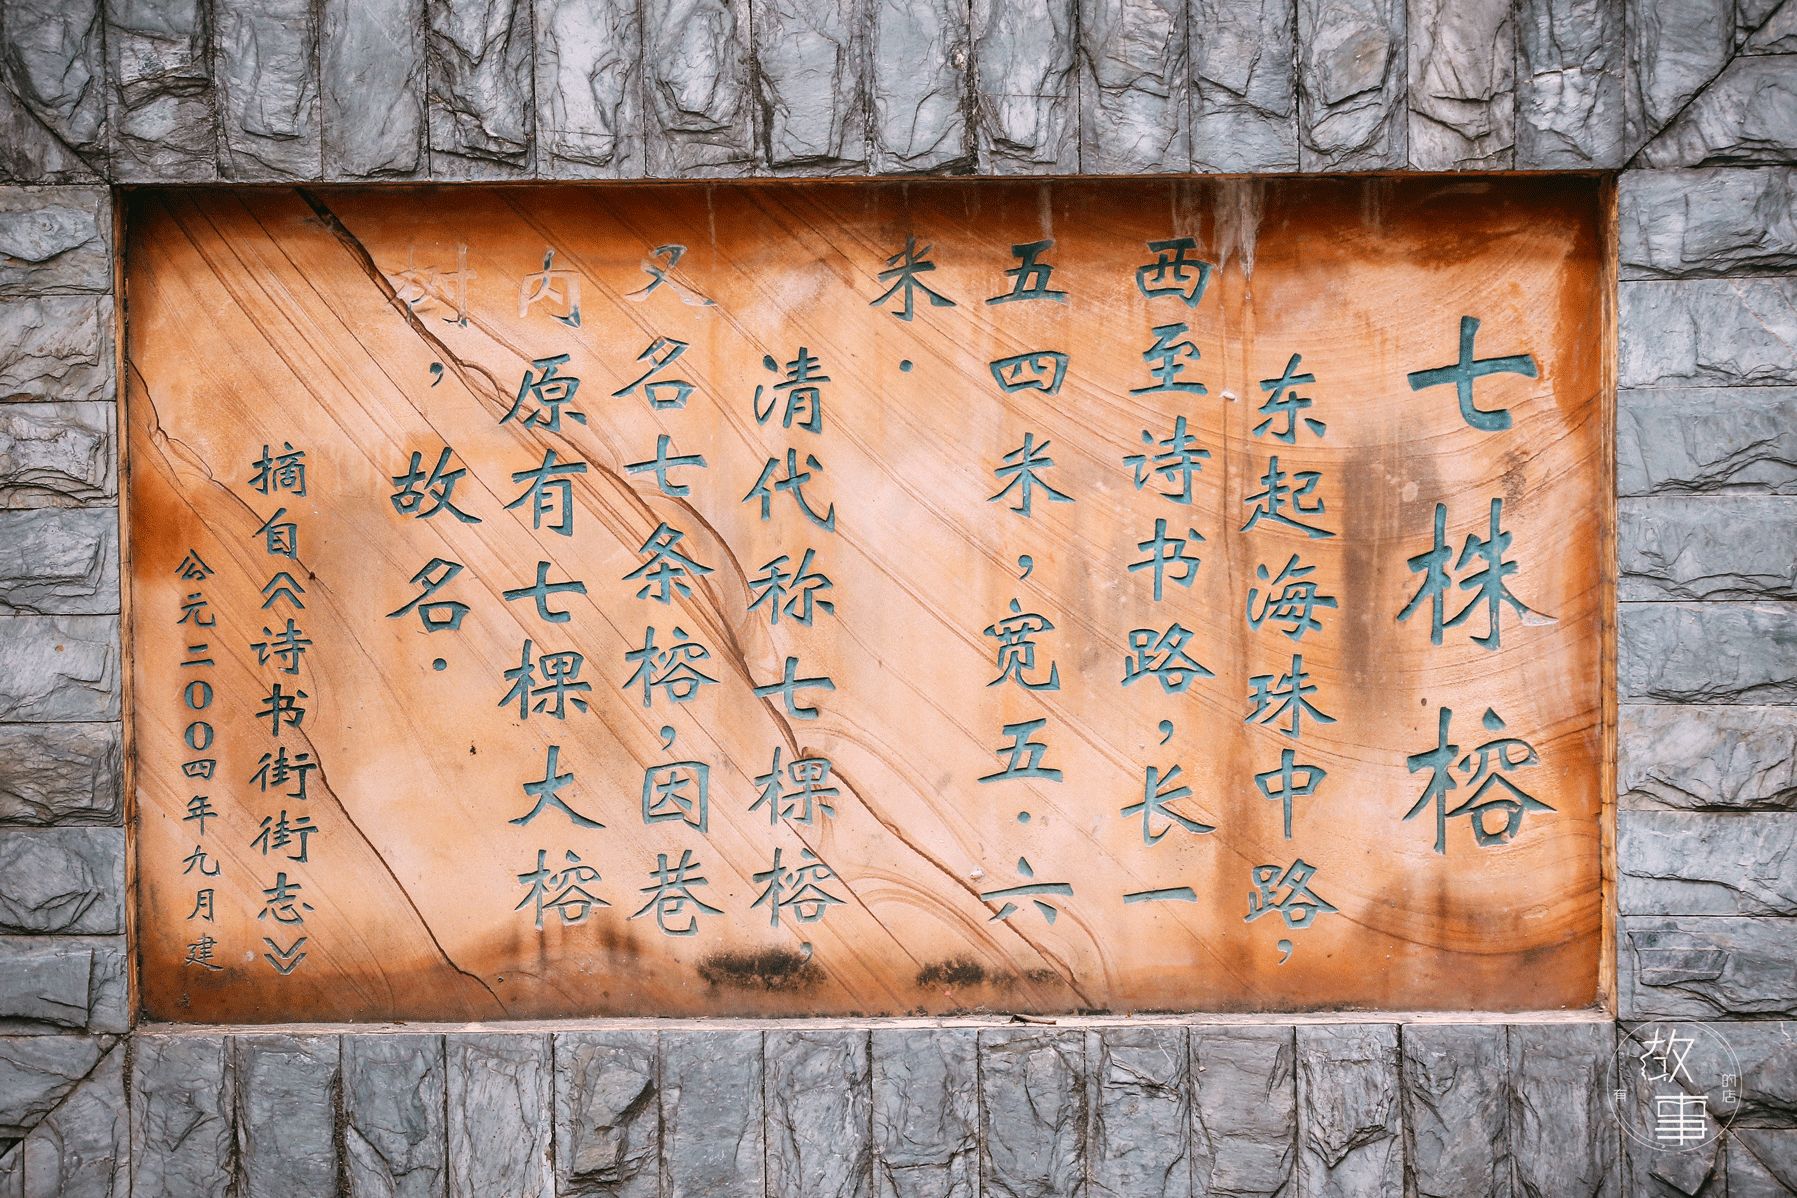 七株榕
东起海珠中路，
西至诗书路，长一
五四米，宽五．六
米．
清代称七棵榕，
又名七条榕，因巷
内原有七棵大榕
树，故名．
摘自《诗书街街志》
公元二00四年九月建
有故事的店